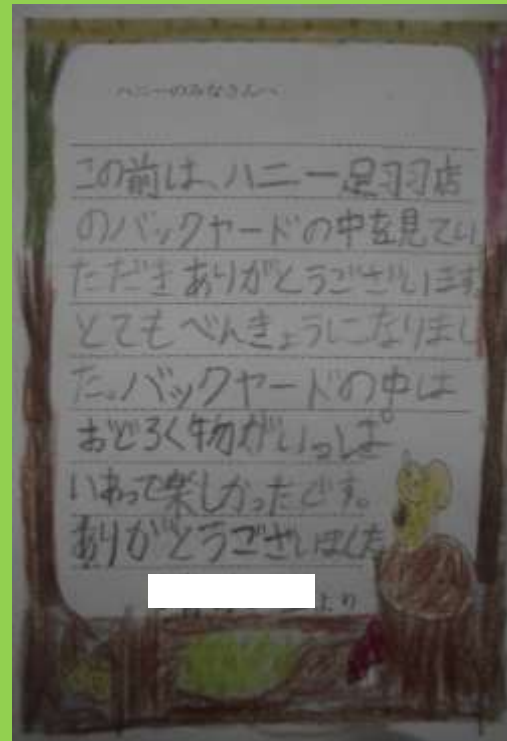 ハニーのみなさんへ
この前は、ハニー足羽店
のバックヤードの中を見てい
ただきありがとうございます。
とてもべんきょうになりまし
た。バックヤードの中は
おどろく物がいっぱ
いあって楽しかったです。
ありがとうございました
より